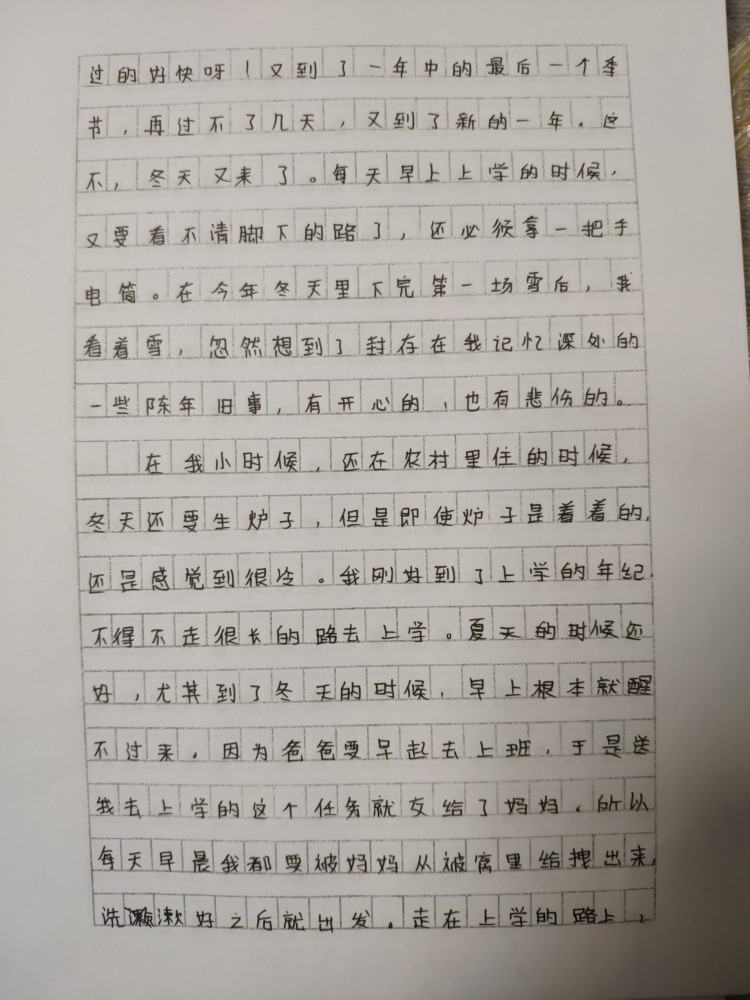 过的好快呀！又到了一年中的最后一个季
节，再过不了几天，又到了新的一年。这
不，冬天又来了。每天早上上学的时候，
又要看不清脚下的路了，还必须拿一把手
电筒。在今年冬天里下完第一场雪后，我
看着雪，忽然想到了封存在我记忆深处的
一些陈年旧事，有开心的、也有悲伤的。
在我小时候，还在农村里住的时候，
冬天还要生炉子，但是即使炉子是着着的，
还是感觉到很冷。我刚好到了上学的年纪，
不得不走很长的路去上学。夏天的时候还
好，尤其到了冬天的时候，早上根本就醒
不过来。因为爸爸要早起去上班，于是送
我去上学的这个任务就交给了妈妈。所以
每天早晨我都要被妈妈从被窝里给拽出来，
洗漱好之后就出发。走在上学的路上，